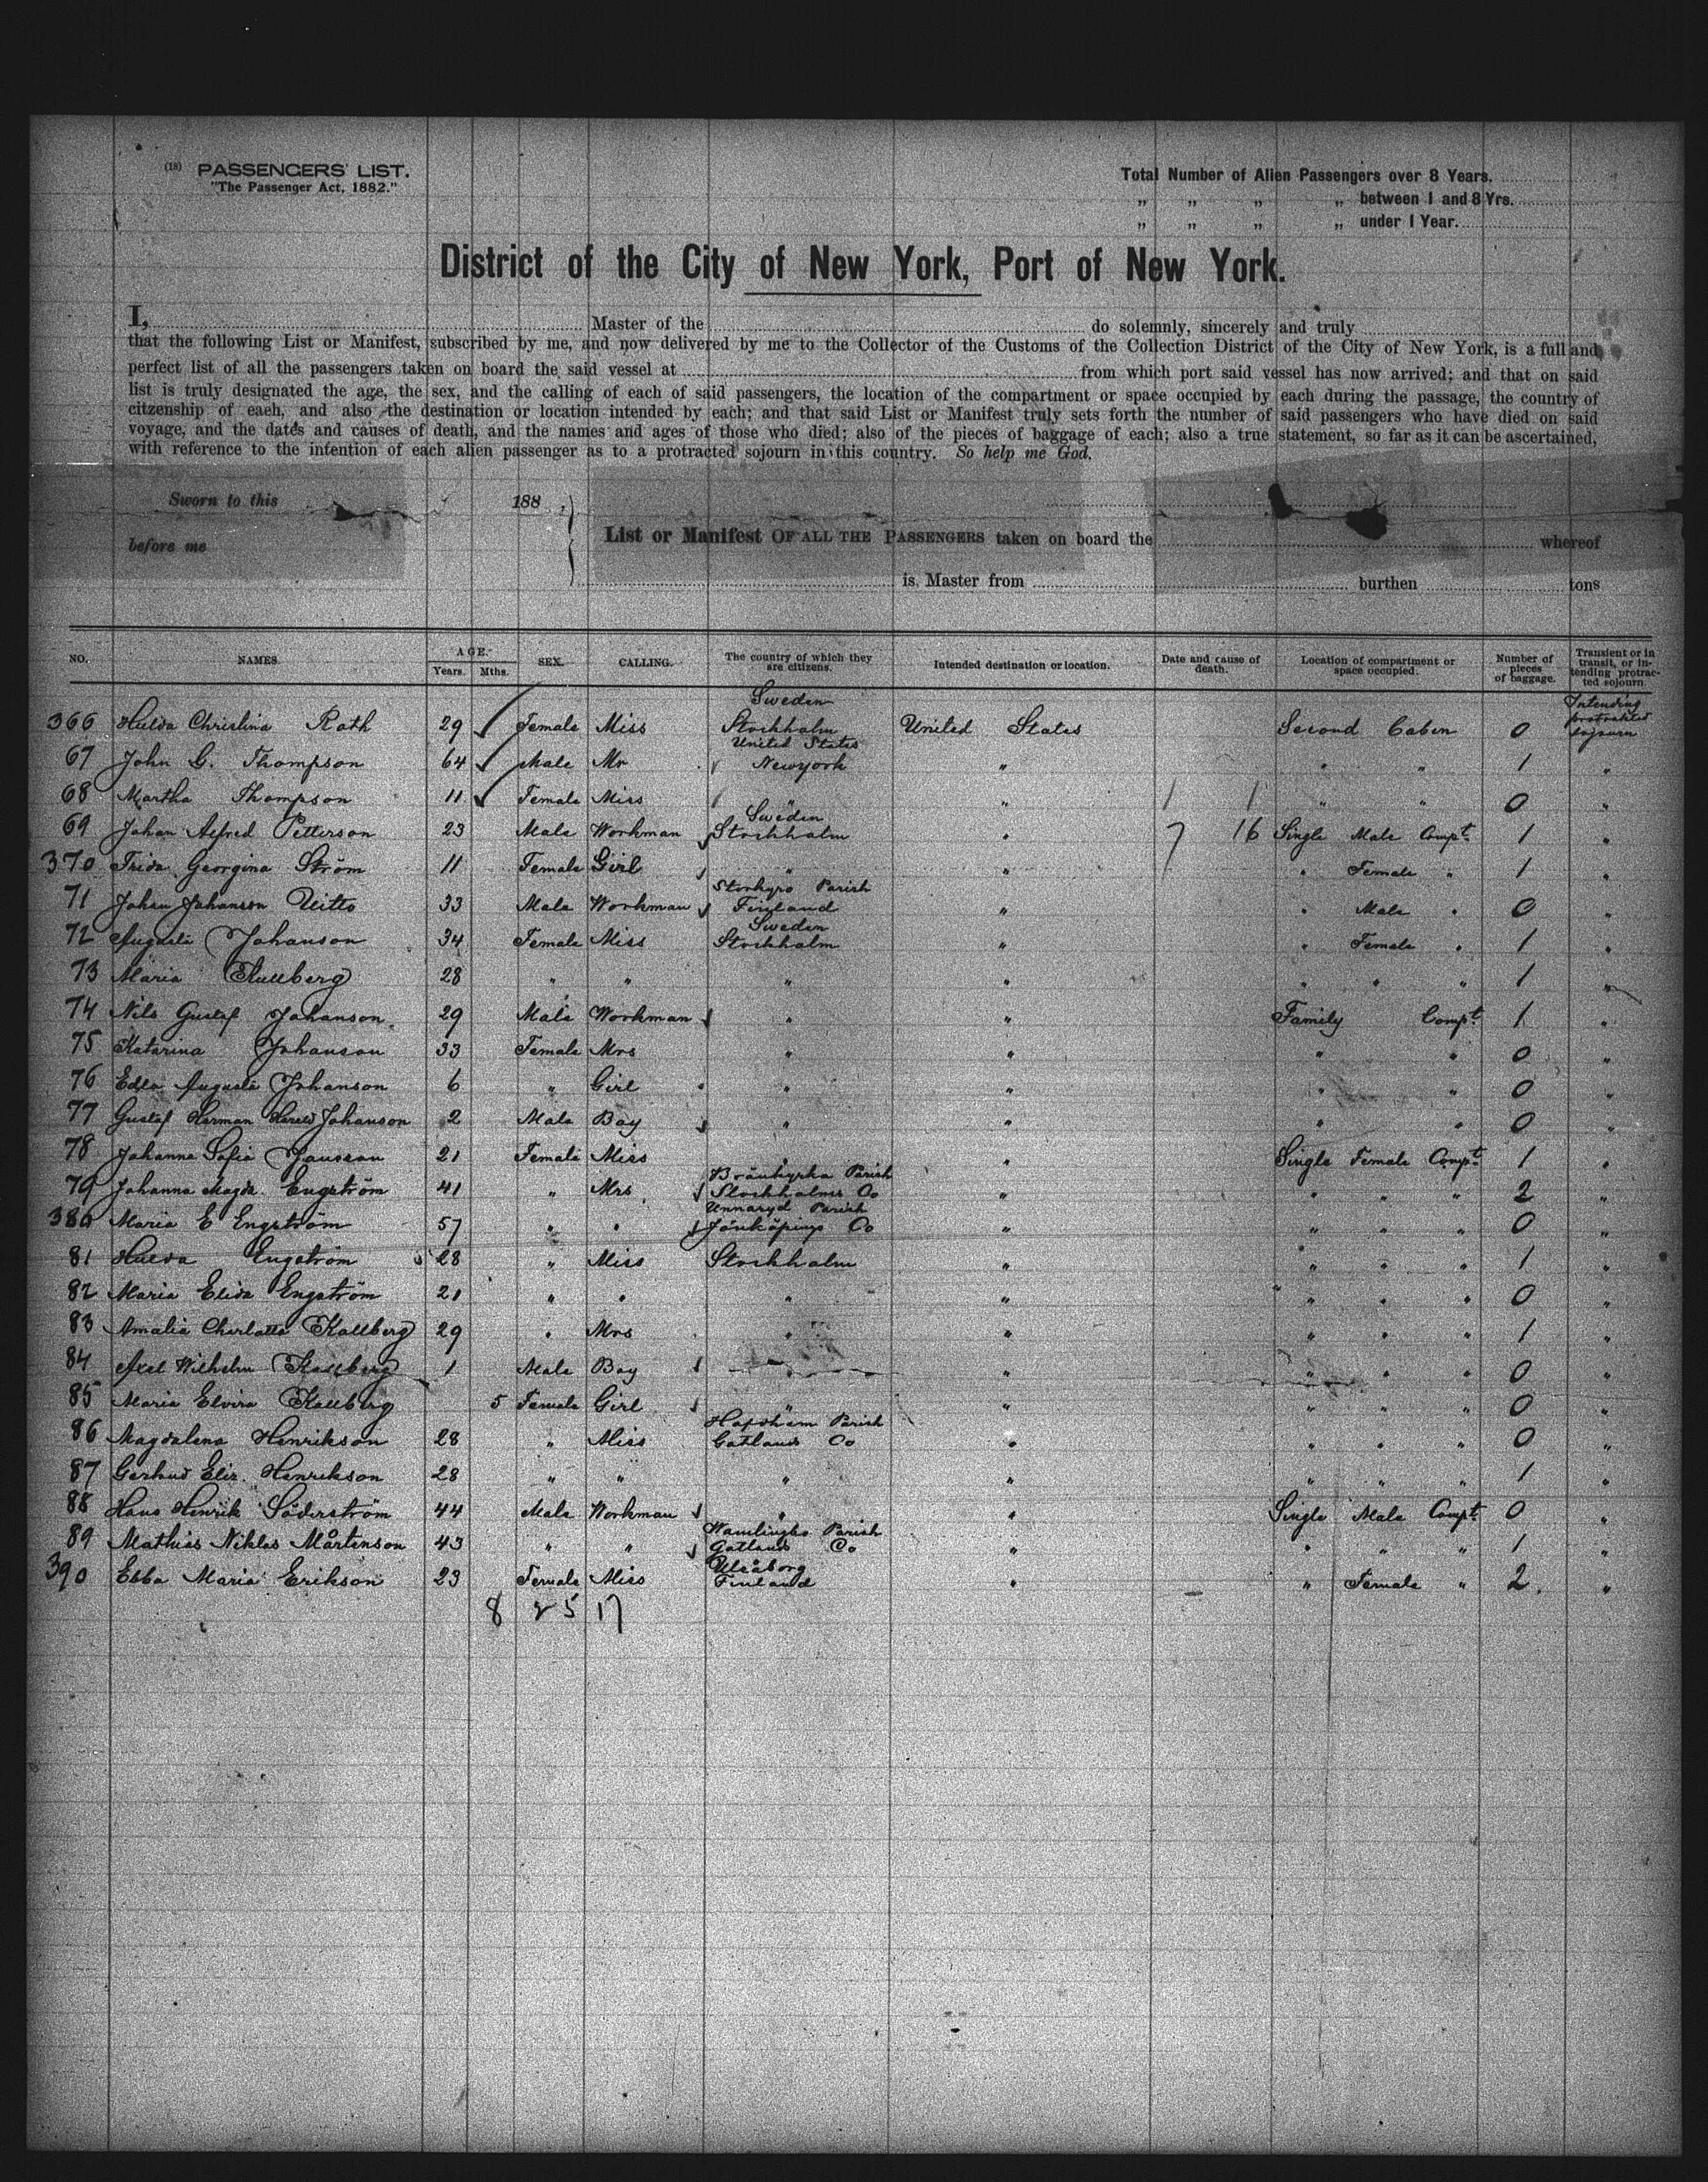 (18) PASSENGERS' LIST.
"The Passenger Act, 1882."
Total Number of Alien Passengers over 8 Years.
" " " " between 1 and 8 Yrs.
" " " " under 1 Year.
District of the City of New York, Port of New York.
I, Master of the do solemnly, sincerely and truly
that the following List or Manifest, subscribed by me, and now delivered by me to the Collector of the Customs of the Collection District of the City of New York, is a full and
perfect list of all the passengers taken on board the said vessel at from which port said vessel has now arrived; and that on said
list is truly designated the age, the sex, and the calling of each of said passengers, the location of the compartment or space occupied by each during the passage, the country of
citzenship of each, and also the destination or location intended by each; and that said List or Manifest truly sets forth the number of said passengers who have died on said
voyage, and the dates and causes of death, and the names and ages of those who died; also of the pieces of baggage of each; also a true statement, so far as it can be ascertained,
with reference to the intention of each alien passenger as to a protracted sojourn in this country. So help me God.
Sworn to this 188
before me
List or Manifest OF ALL THE PASSENGERS taken on board the whereof
is Master from burthen tons
NO. NAMES. AGE. Years. Mths. SEX. CALLING. The country of which they are citizens. Intended destination or location. Date and cause of death. Location of compartment or space occupied. Number of pieces of baggage. Transient or in transit, or intending protracted sojourn.
Sweden
366 Hulda Christina Rath 29 Female Miss Stockholm United States Second Cabin 0 Intending protracted sojourn
United States
67 John G. Thompson 64 Male Mr Newyork " " " 1 "
68 Martha Thompson 11 Female Miss " " 1 1 " " 0 "
Sweden
69 Johan Alfred Petterson 23 Male Workman Stockholm " 7 16 Single Male Compt. 1 "
370 Frida Georgina Ström 11 Female Girl " " " Female " 1 "
Storkyro Parish
71 Johan Johanson Uitto 33 Male Workman Finland " " Male " 0 "
Sweden
72 Augusta Johanson 34 Female Miss Stockholm " " Female " 1 "
73 Maria Kullberg 28 " " " " " " " 1 "
74 Nils Gustaf Johanson 29 Male Workman " " Family Compt. 1 "
75 Katarina Johanson 33 Female Mrs " " " " 0 "
76 Edla Augusta Johanson 6 " Girl " " " " 0 "
77 Gustaf Herman Harald Johanson 2 Male Boy " " " " 0 "
78 Johanna Sofia Jansson 21 Female Miss " " Single Female Compt. 1 "
Brännkyrka Parish
79 Johanna Magda. Engström 41 " Mrs. Stockholms Co " " " " 2 "
Unnaryd Parish
380 Maria E Engström 57 " " Jönköpings Co " " " " 0 "
81 Hulda Engström 28 " Miss Stockholm " " " " 1 "
82 Maria Elida Engström 21 " " " " " " " 0 "
83 Amalia Charlotta Kallberg 29 " Mrs " " " " " 1 "
84 Axel Wilhelm Kallberg 1 Male Boy " " " " " 0 "
85 Maria Elvira Kallberg 5 Female Girl " " " " " 0 "
Parish
86 Magdalena Henrikson 28 " Miss Gotlands Co " " " " 0 "
87 Gertrud Eliz. Henrikson 28 " " " " " " " 1 "
88 Hans Henrik Söderström 44 Male Workman " " Single Male Compt. 0 "
Wamlingbo Parish
89 Mathias Niklas Mårtenson 43 " " Gotlands Co " " " " 1 "
Uleåborg
390 Ebba Maria Erikson 23 Female Miss Finland " " Female " 2. "
8 25 17